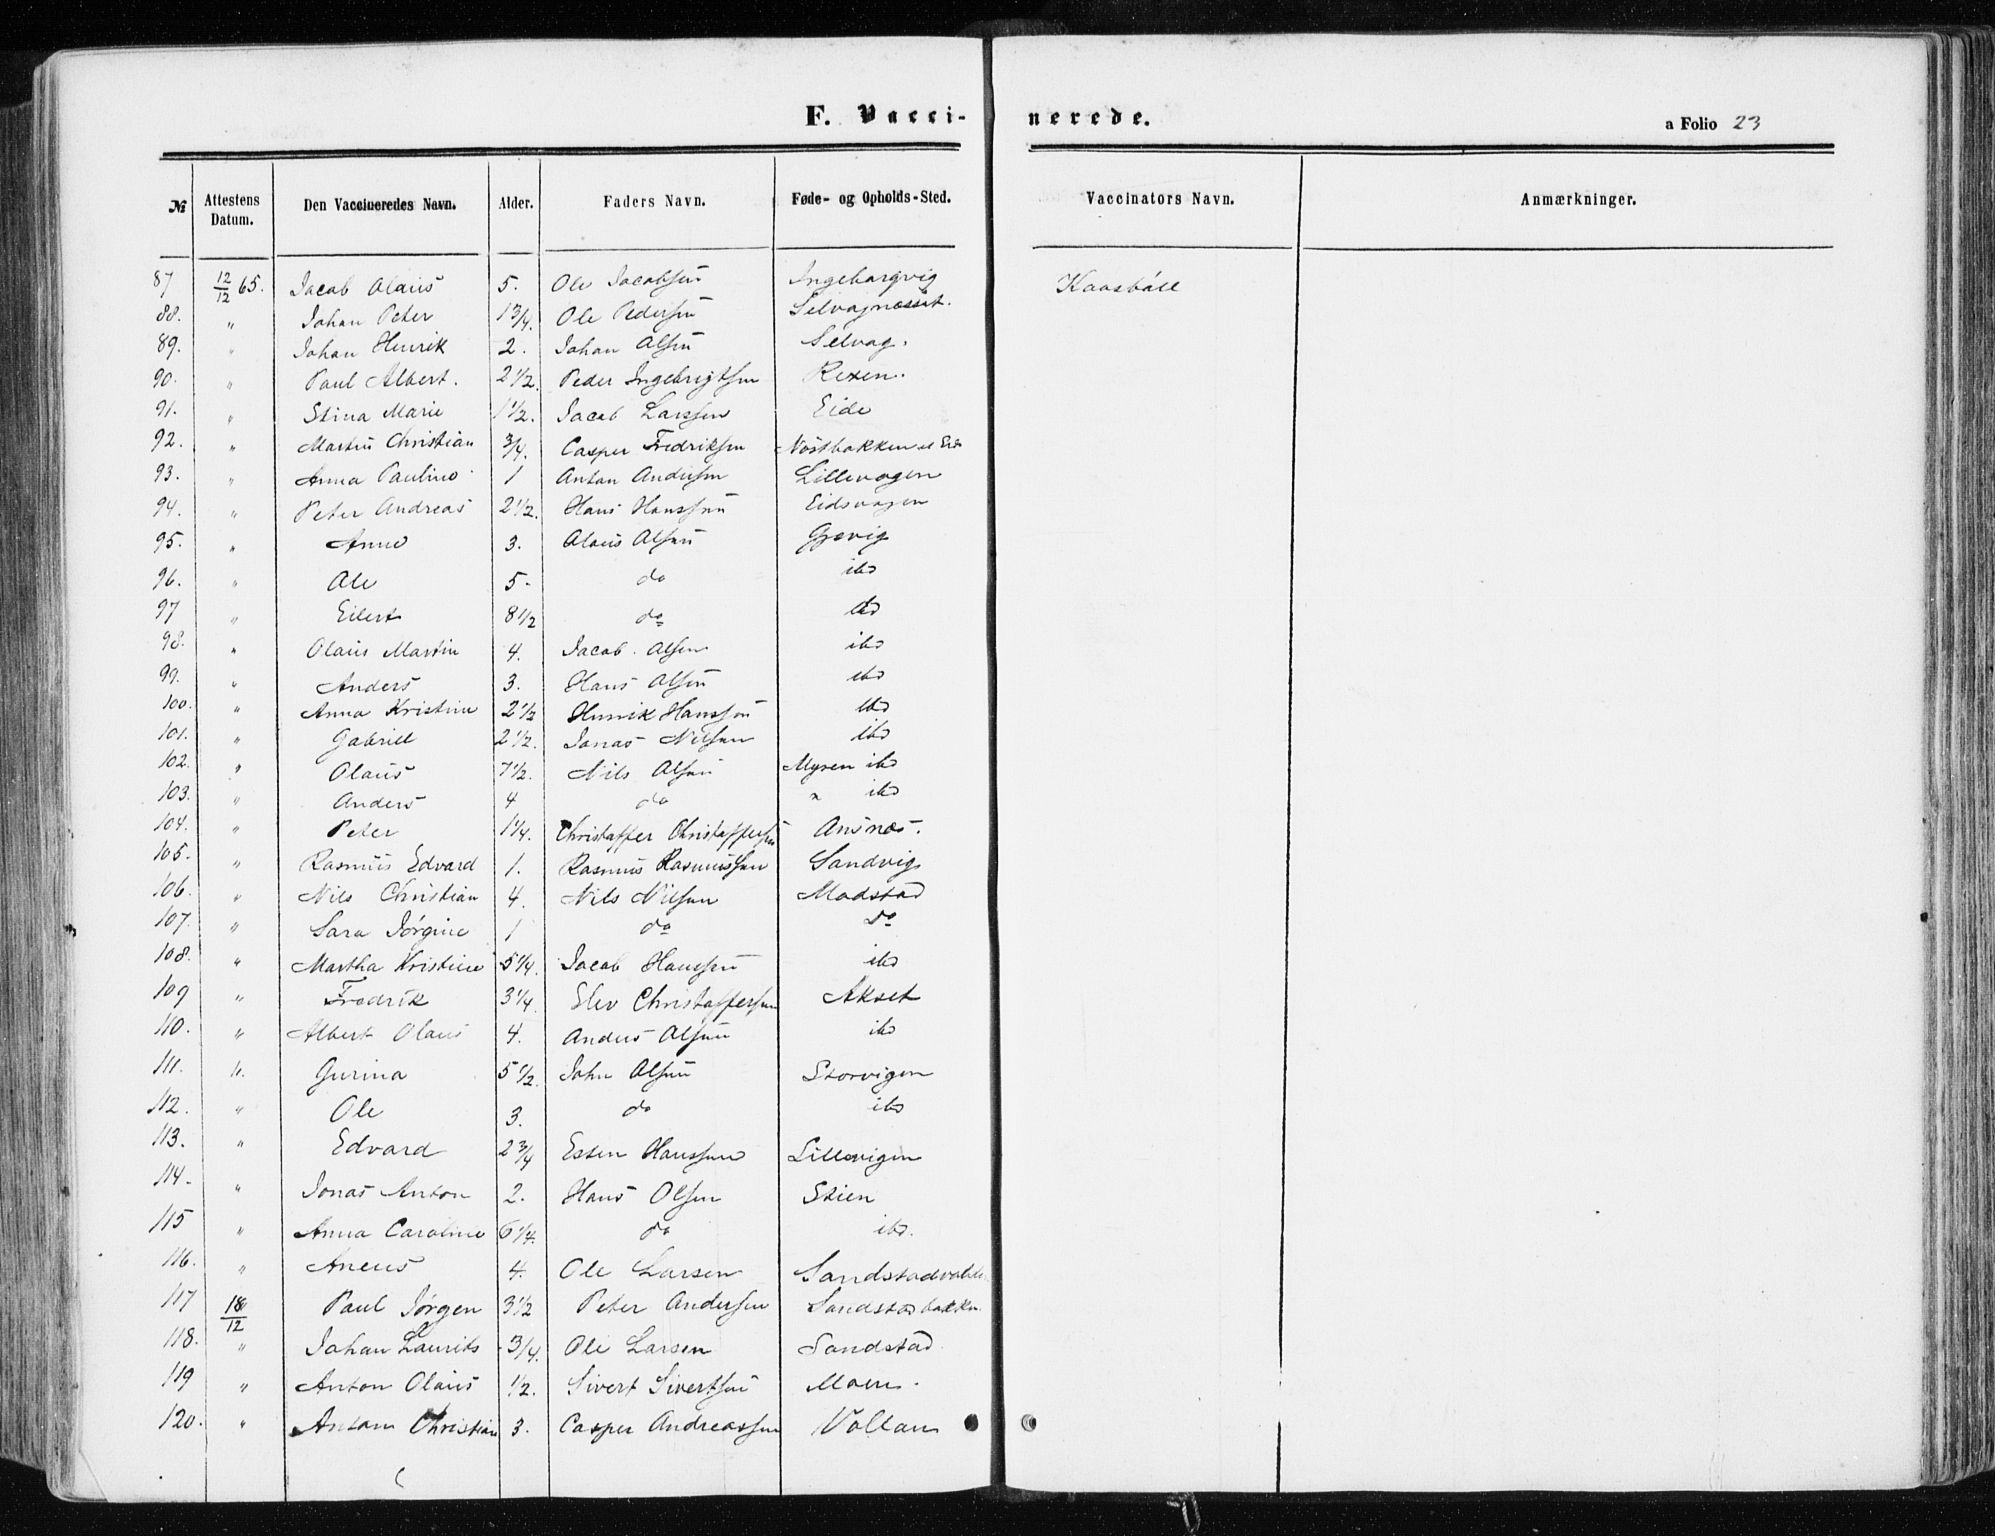 F. Vacci- nerede. a Folio 23
№ Attestens Datum. Den Vaccineredes Navn. Alder. Faders Navn. Føde- og Opholds-Sted. Vaccinators Navn. Anmærkninger.
87 12/12 65. Jacob Olaus 5. Ole Jacobsen Ingeborgvig Kaasbøll
88. " Johan Peter 1 3/4. Ole Pedersen Selvagnesset.
89. " Johan Henrik 2. Johan Olsen Selvag.
90. " Paul Albert. 2 1/2. Peder Ingebrigtsen Rexen.
91. " Stina Marie 1 1/2. Jacob Larssen Eide
92. " Martin Christian 3/4. Casper Fredriksen Nøstbakken
93. " Anna Pauline 1 Anton Andersen Lillevagen
94. " Peter Andreas 2 1/2. Hans Hanssen Eidsvagen
95. " Anne 3. Olaus Olsen Gjøvig
96. " Ole 5. do ibd
97 " Eilert 8 1/2 do ibd
98. " Olaus Martin 4. Jacob Olsen ibd
99. " Anders 3. Hans Olsen ibd
100. " Anna Kristine 2 1/2 Henrik Hanssen ibd
101. " Gabriel 2 1/2. Jonas Nilsen ibd
102. " Olaus 7 1/2. Nils Olsen Myren ibd
103. " Anders 4 do " ibd
104. " Peter 1 1/4. Christoffer Christoffersen Ansnes.
105. " Rasmus Edvard 1. Rasmus Rasmussen Sandvig
106. " Nils Christian 4. Nils Nilsen Madstad
107. " Sara Jørgine 1 do do
108. " Martha Kristine 5 1/4. Jacob Hanssen ibd
109 " Fredrik 3 1/4. Elev Christoffersen Akset
110. " Albert Olaus 4. Anders Olsen ibd
111. " Gurina 5 1/2. John Olsen Storvigen
112. " Ole 3. do ibd
113. " Edvard 2 3/4 Esten Hanssen Lillevigen
114. " Jonas Anton 2. Hans Olsen Stien
115 " Anna Caroline 6 1/4. do ibd.
116. " Aneus 4. Ole Larsen
117 18/12 Paul Jørgen 3 1/2 Peter Andersen Sandstadbakken
118. " Johan Laurits 3/4. Ole Larsen Sandstad
119 " Anton Olaus 1/2. Sivert Sivertsen Moen.
120. " Anton Christian 3. Casper Andreassen Vollan